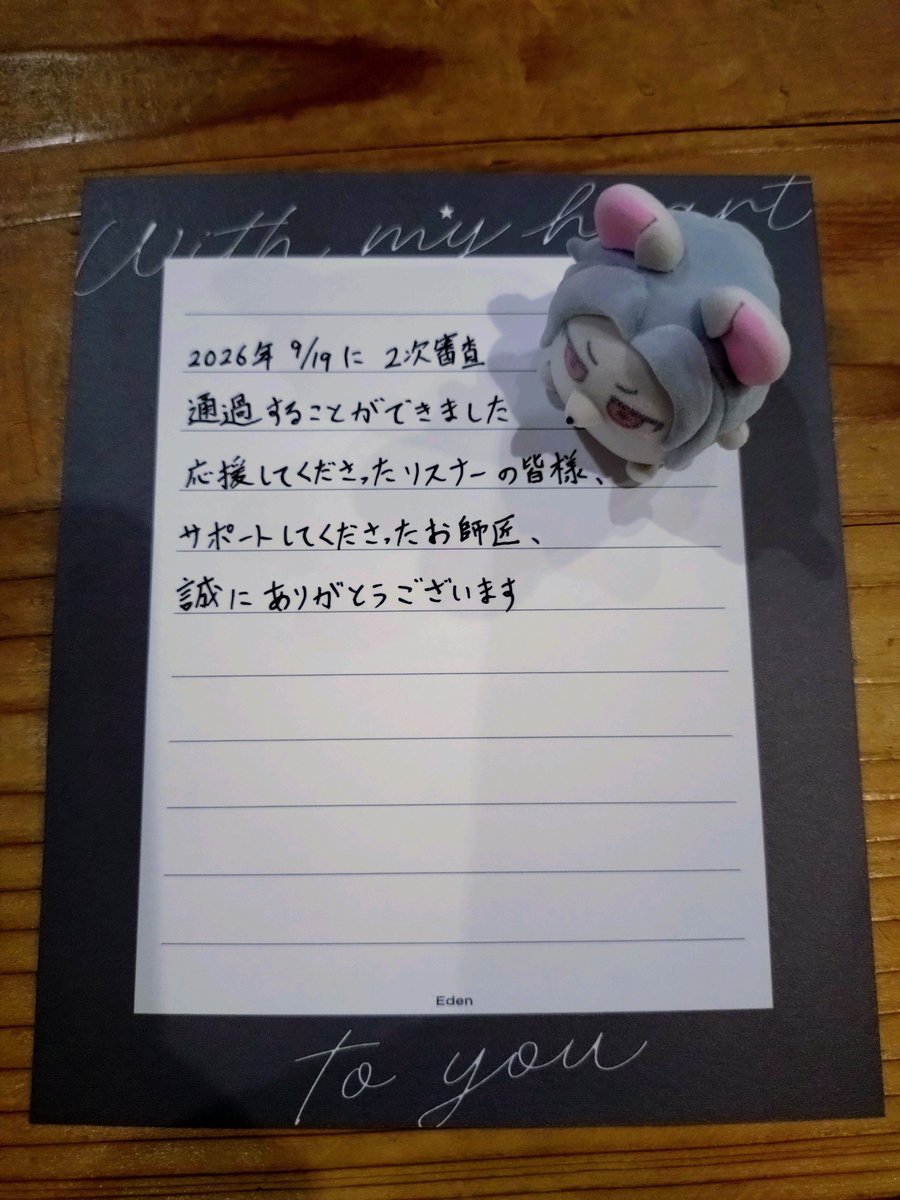 With my heart
2026年 9/19に 2次審査
通過することができました
応援してくださったリスナーの皆様、
サポートしてくださったお師匠、
誠にありがとうございます
Eden
to you